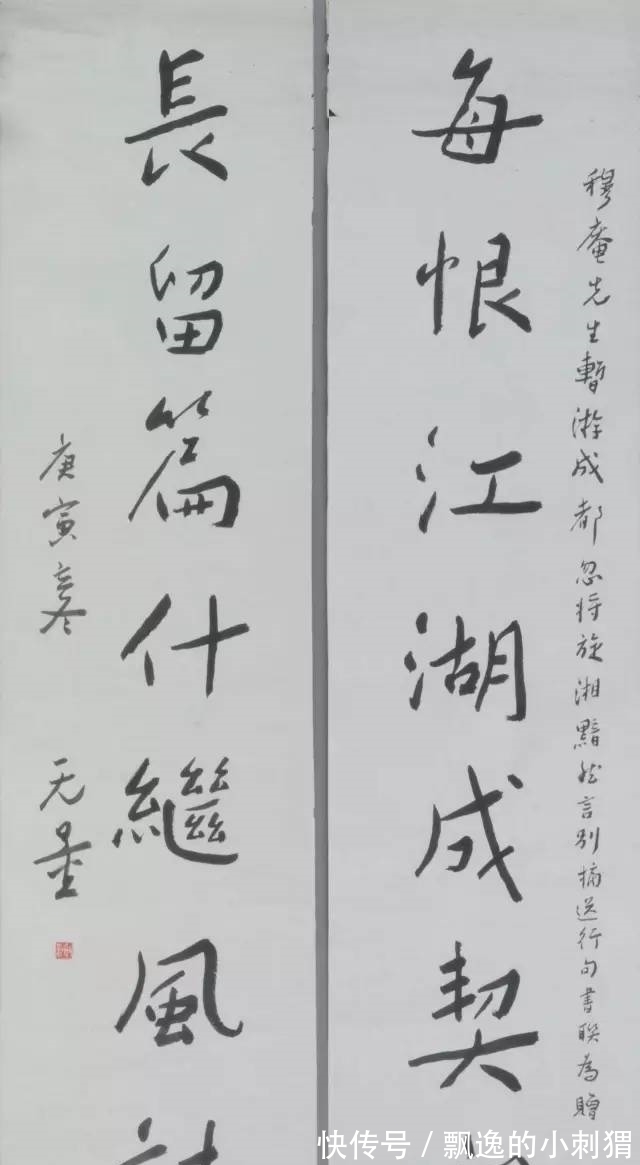 穆庵先生暫游成都忽将旋湘黯然言別摘送行句書联為贈
每恨江湖成契
長留篇什繼風
庚寅寒
无量
快传号/飘逸的小刺猬